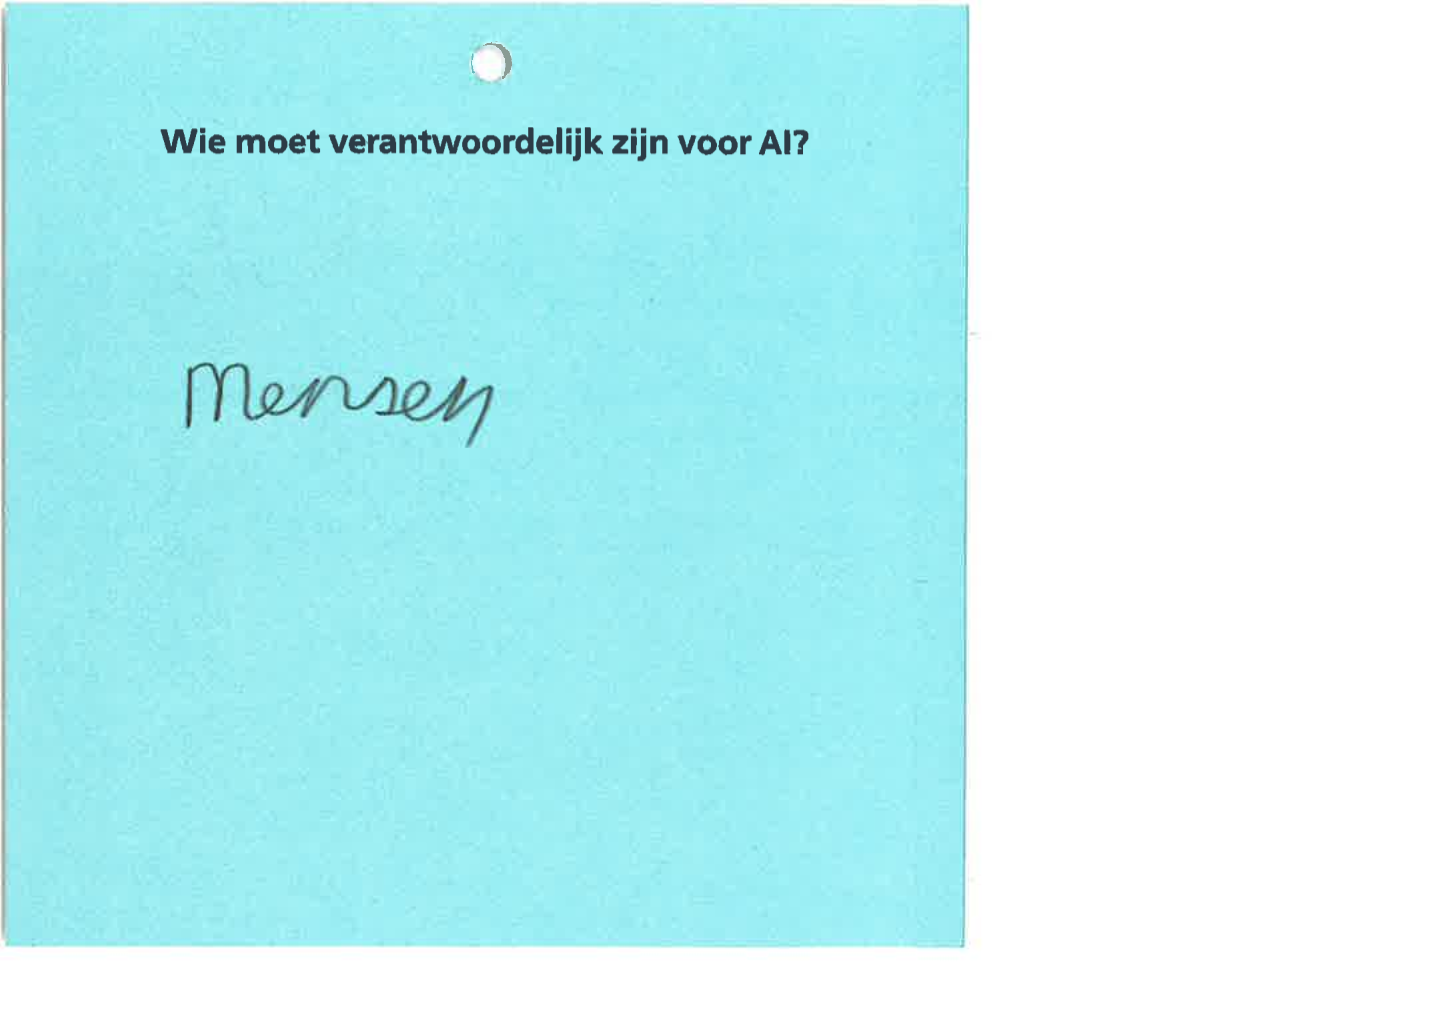 Wie moet verantwoordelijk zijn voor AI?
Mensen